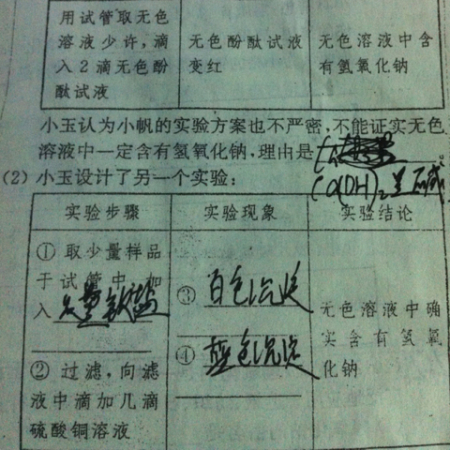 用试管取无色
溶液少许，滴
入2滴无色酚
酞试液
无色酚酞试液
变红
无色溶液中含
有氢氧化钠
小玉认为小帆的实验方案也不严密，不能证实无色
溶液中一定含有氢氧化钠，理由是
Ca(OH)₂呈碱
(2) 小玉设计了另一个实验：
实验步骤
实验现象
实验结论
① 取少量样品
于试管中，加
入足量
② 过滤，向滤
液中滴加几滴
硫酸铜溶液
③ 白色沉淀
④ 蓝色沉淀
无色溶液中确
实含有氢氧
化钠